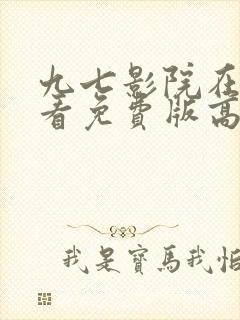 九七影院在
看免费版高
我是寶馬我怕